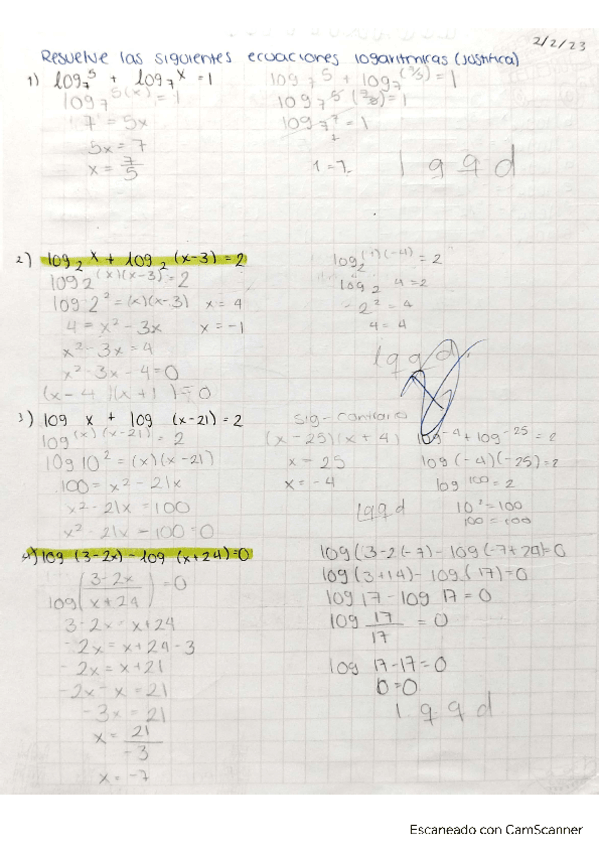 2/2/23
Resuelve las siguientes ecuaciones logaritmicas (Justifica)
1) log₇⁵ + log₇ˣ = 1
log₇^5(x) = 1
7 = 5x
5x = 7
x = 7/5
log₇⁵ + log₇^(7/5) = 1
log₇^5(7/5) = 1
log₇⁷ = 1
1 = 1
lqqd
2) log₂ˣ + log₂(x-3) = 2
log₂^(x)(x-3) = 2
log 2² = (x)(x-3) x = 4
4 = x² - 3x x = -1
x² - 3x = 4
x² - 3x - 4 = 0
(x-4)(x+1) = 0
log₂^(1)(-4) = 2
log₂ 4 = 2
2² = 4
4 = 4
lqqd
3) log x + log (x-21) = 2
log^(x)(x-21) = 2
log 10² = (x)(x-21)
100 = x² - 21x
x² - 21x = 100
x² - 21x - 100 = 0
sig-contrario
(x-25)(x+4)
x = 25
x = -4
log⁻⁴ + log⁻²⁵ = 2
log(-4)(-25) = 2
log¹⁰⁰ = 2
10² = 100
100 = 100
lqqd
4) log (3-2x) - log (x+24) = 0
log(3-2x/x+24) = 0
3-2x = x+24
-2x = x+24-3
-2x = x+21
-2x-x = 21
-3x = 21
x = 21/-3
x = -7
log(3-2(-7) - log(-7+24) = 0
log(3+14) - log(17) = 0
log 17 - log 17 = 0
log 17/17 = 0
log 17-17 = 0
0 = 0
lqqd
Escaneado con CamScanner